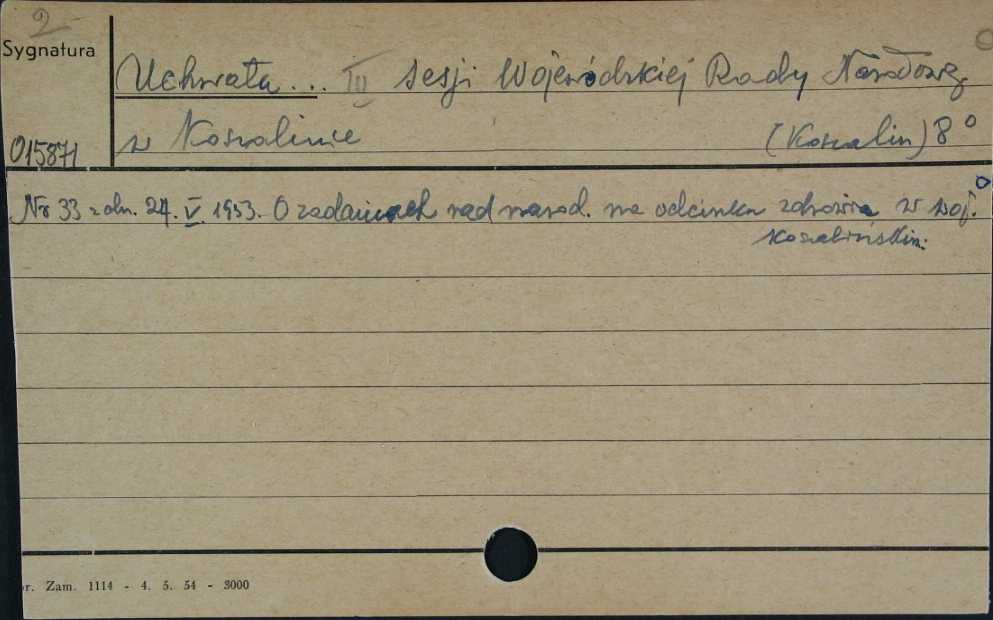 2
Sygnatura
Uchwała... III sesji Wojewódzkiej Rady Narodowej
015871
w Koszalinie (Koszalin) 8°
Nr 33 z dn. 24. V. 1953. O zadaniach rad narod. na odcinku zdrowia w woj.
koszalińskim.
r. Zam. 1114 - 4. 5. 54 - 3000